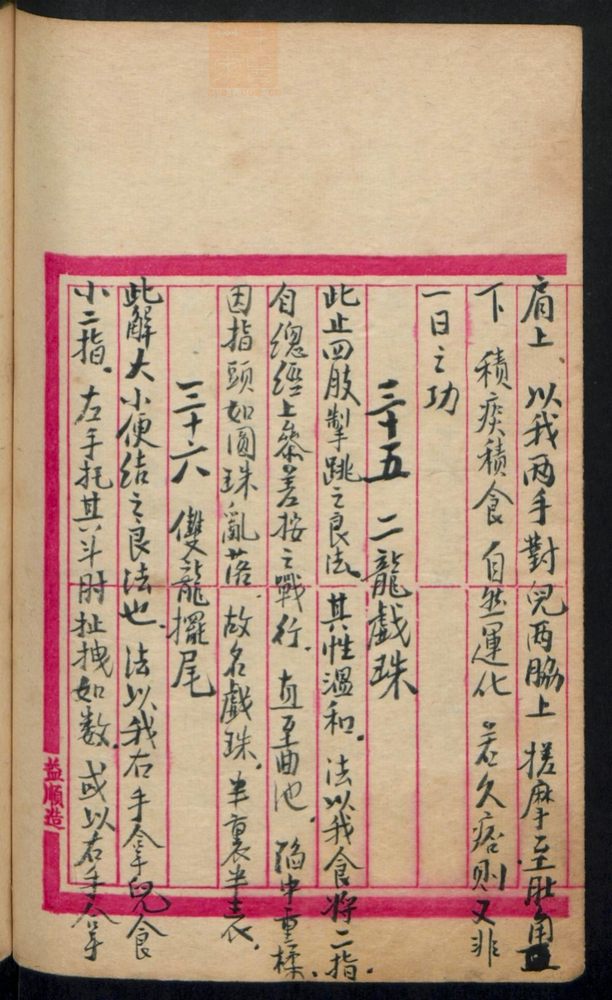 肩上、以我两手對兒两脇上搓摩至肚角
下 積痰積食自然運化 若久痞則又非
一日之功
三十五 二龍戲珠
此止四肢掣跳之良法 其性温和.法以我食將二指.
自總經上參差按之戰行.直至曲池 陷中重揉.
因指頭如圓珠亂落.故名戲珠.半裏半表.
三十六 雙龍擺尾
此解大小便结之良法也.法以我右手拿兒食
小二指.左手托其斗肘扯拽如数.或以右手拿
益順造